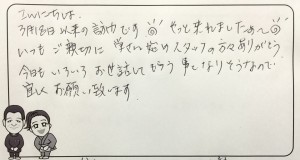 こんにちは
3月18日以来の訪中です やっと来れましたぁ〜
いつもご親切に 学さい宿のスタッフの方々ありがとう
今日もいろいろお世話してもらう事となりそうなので
宜しくお願い致します